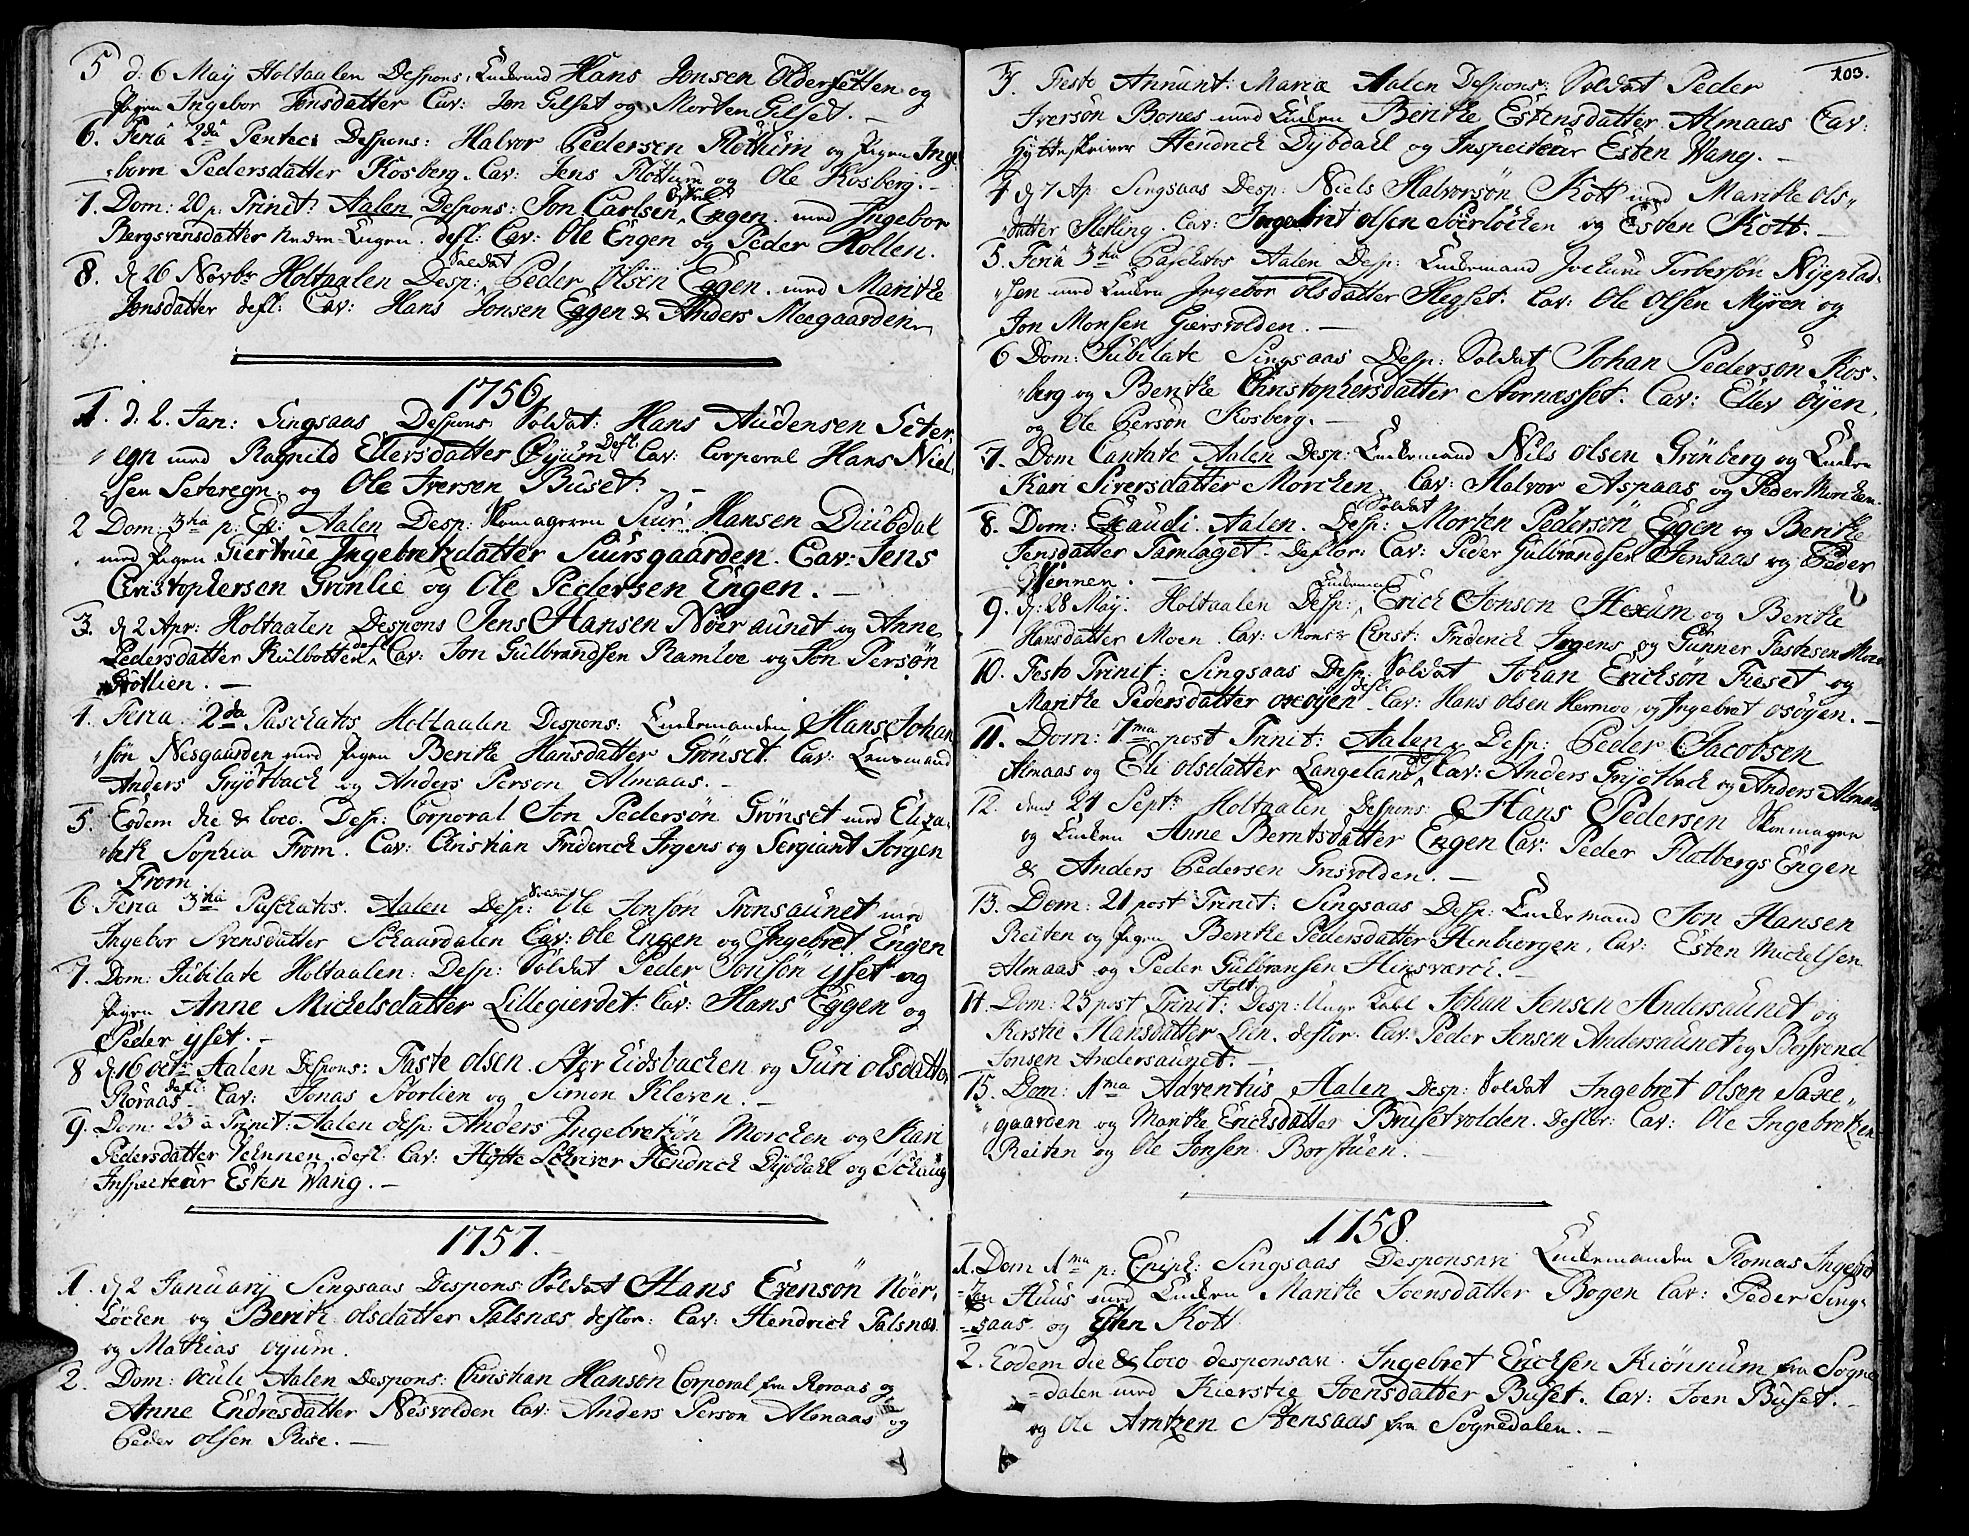 5 d: 6 May Holtaalen Despons: Enkemd Hans Jonsen Oldersletten og
Pigen Ingebor Jonsdatter Cav: Jon Gilset og Morten Gilset. —
6. Feriâ 2dâ Pentec: Despons: Halvor Pedersen Flöttum og Pigen Inge-
born Pedersdatter Kosberg. Cav: Jens Flöttum og Ole Kosberg. —
7. Dom: 20 p: Trinit: Aalen Despons: Jon Carlsen Engen med Ingebor
Bergsvensdatter Engen. defl: Cav: Ole Engen og Peder Hollen.
8. d 26 Novbr Holtaalen Desp: Soldat Peder Olsön Eggen. med Maritte
Jonsdatter defl: Cav: Hans Jonsen Eggen & Anders Meegaarden
9.
1756
1. d: 2. Jan: Singsaas Despons Soldat: Hans Audensen Seter
egn med Ragnild Ellersdatter Öyum Defl: Cav: Corporal Hans Niel-
sen Seteregn. og Ole Iversen Buset. —
2 Dom: 3tia p: Ep: Aalen Desp: Skomageren Siur Hansen Diubdal
med Pigen Giertrue Ingebretzdatter Siursgaarden. Cav: Jens
Christophersen Grönlie og Ole Pedersen Engen. —
3. d 2 Apr: Holtaalen Despons Jens Hansen Nöeraunet og Anne
Pedersdatter Kulbotten defl: Cav: Jon Gulbrandsen Ramloe og Jon Persön
Grötlien. —
4. Feria 2da Paschatis Holtaalen Despons: Enkemanden Hans Johan
sön Nesgaarden med Pigen Beritte Hansdatter Grönset. Cav: Lensmand
Anders Grydtbach og Anders Person Almaas. —
5. Eodem die & loco. Desp: Corporal Jon Pedersön Grönset med Eliza-
beth Sophia From. Cav: Christian Friderich Irgens og Sergiant Jörgen
From
6 Feria 3tia Paschatis. Aalen Desp: Soldat Ole Jonsön Tronsaunet med
Ingebor Svensdatter Schaardalen Cav: Ole Engen og Ingebret Engen
7. Dom: Jubilate Holtaalen: Desp: Soldat Peder Jonsön ysset og
Pigen Anne Mickelsdatter Lillegierdet. Cav: Hans Eggen og
Peder ysset. —
8 d: 16 octr Aalen Despons: Taste Olsen Stor Eidsbacken og Guri Olsdatter
Röraas defl: Cav: Jonas Storlien og Simon Kleven. —
9. Dom: 23 a Trinit: Aalen desp: Anders Ingebretsön Morcken og Kari
Pedersdatter Vennen. defl: Cav: Hytte Schriver Hendrich Dybdahl og
Inspecteur Esten Wang. —
1757.
1. d 2 Januarij Singsaas Despons: Soldat Hans Evensön Nöer-
Löcken og Berit Olsdatter Talsnæs deflor: Cav: Hendrich Talsnæs
og Mathias öyum.
2. Dom: Oculi Aalen Despons: Christian Hansön Corporal fra Roraas og
Anne Endresdatter Nesvolden Cav: Anders Person Almaas og
Peder Olsen Riise. —
103.
3. Festo Annunt: Mariæ Aalen Despons: Soldat Peder
Iversön Bones med Enken Beritte Estensdatter Almaas Cav:
Hytteskriver Hendrich Dybdahl og Inspecteur Esten Wang. —
4 d 7 Ap: Singsaas Desp: Niels Halvorsön Kott med Maritte Ols-
datter Hefling. Cav: Ingebrit Olsen Soerlöcken og Esten Kott. —
5. Feriâ 3tia Paschatos Aalen Desp: Enkemand Jochum Torbersön Nijeplad-
sen med Enken Ingebor Olsdatter Hegset. Cav: Ole Olsen Myren og
Jon Monsen Giersvolden. —
6 Dom: Jubilate Singsaas Desp: Soldat Johan Pedersön Kos-
berg og Beritte Christophersdatter Stornæsset. Cav: Ellev öyen
og Ole Persön Kosberg. —
7. Dom Cantate Aalen Desp: Enkemand Nils Olsen Grönberg og Enken
Kari Siversdatter Morcken Cav: Halvor Aspaas og Peder Morcken
8. Dom: Exaudi. Aalen. Desp: Soldat Morten Pedersön Eggen og Beritte
Jensdatter Tamlaget. Deflor: Cav: Peder Gulbrandsen Stensaas og Peder
Wennen. —
9. d: 28 May: Holtaalen Desp: Enkemand Erich Jonsön Hexum og Beritte
Hansdatter Moen. Cav: Monsr Christ: Friderich Irgens og Gunner Tastesen Moe
10. Festo Trinit: Singsaas Desp: Soldat Johan Erichsön Fieset og
Maritte Pedersdatter osöyen defl: Cav: Hans Olsen Hermoe og Ingebret osöyen. —
11. Dom: 7ma post Trinit: Aalen Desp: Peder Jacobsen
Almaas og Eli Olsdatter Langeland Cav: Anders Grydtbach og Anders Almaas
12. dend 24 Septr Holtaalen Despons Hans Pedersen Skomager
og Enken Anne Berntsdatter Engen Cav: Peder Flatbergs Engen
& Anders Pedersen Grisvolden. —
13. Dom: 21 post Trinit: Singsaas Desp: Enkemand Jon Hansen
Reiten og Pigen Beritte Pedersdatter Henbiergen. Cav: Esten Mickelsen
Almaas og Peder Gulbransen Hinsværck. —
14. Dom: 23 post Trinit: Holt: Desp: Unge Karl Johan Jensen Andersaunet og
Kirstie Hansdatter Lien. deflor. Cav: Peder Jensen Andersaunet og Borsvend
Jonsen Andersaunet. —
15. Dom: 1ma Adventûs Aalen Desp: Soldat Ingebret Olsen Saxe-
gaarden og Maritte Ericksdatter Brusetvolden. Deflor: Cav: Ole Ingebretzen
Reiten og Ole Jonsen Borstuen. —
1758.
1. Dom 1ma p: Epiph: Singsaas Desponsari Enkemanden Thomas Ingebr
Huus med Enken Maritte Joensdatter Bogen Cav: Peder Sing-
saas og Esten Kott
2. Eodem die & loco desponsari Ingebret Ericksen Kiönnum fra Sogne
dalen med Kierstie Joensdatter Buset. Cav: Joen Buset. —
og Ole Arntzen Stensaas fra Sognedalen. —